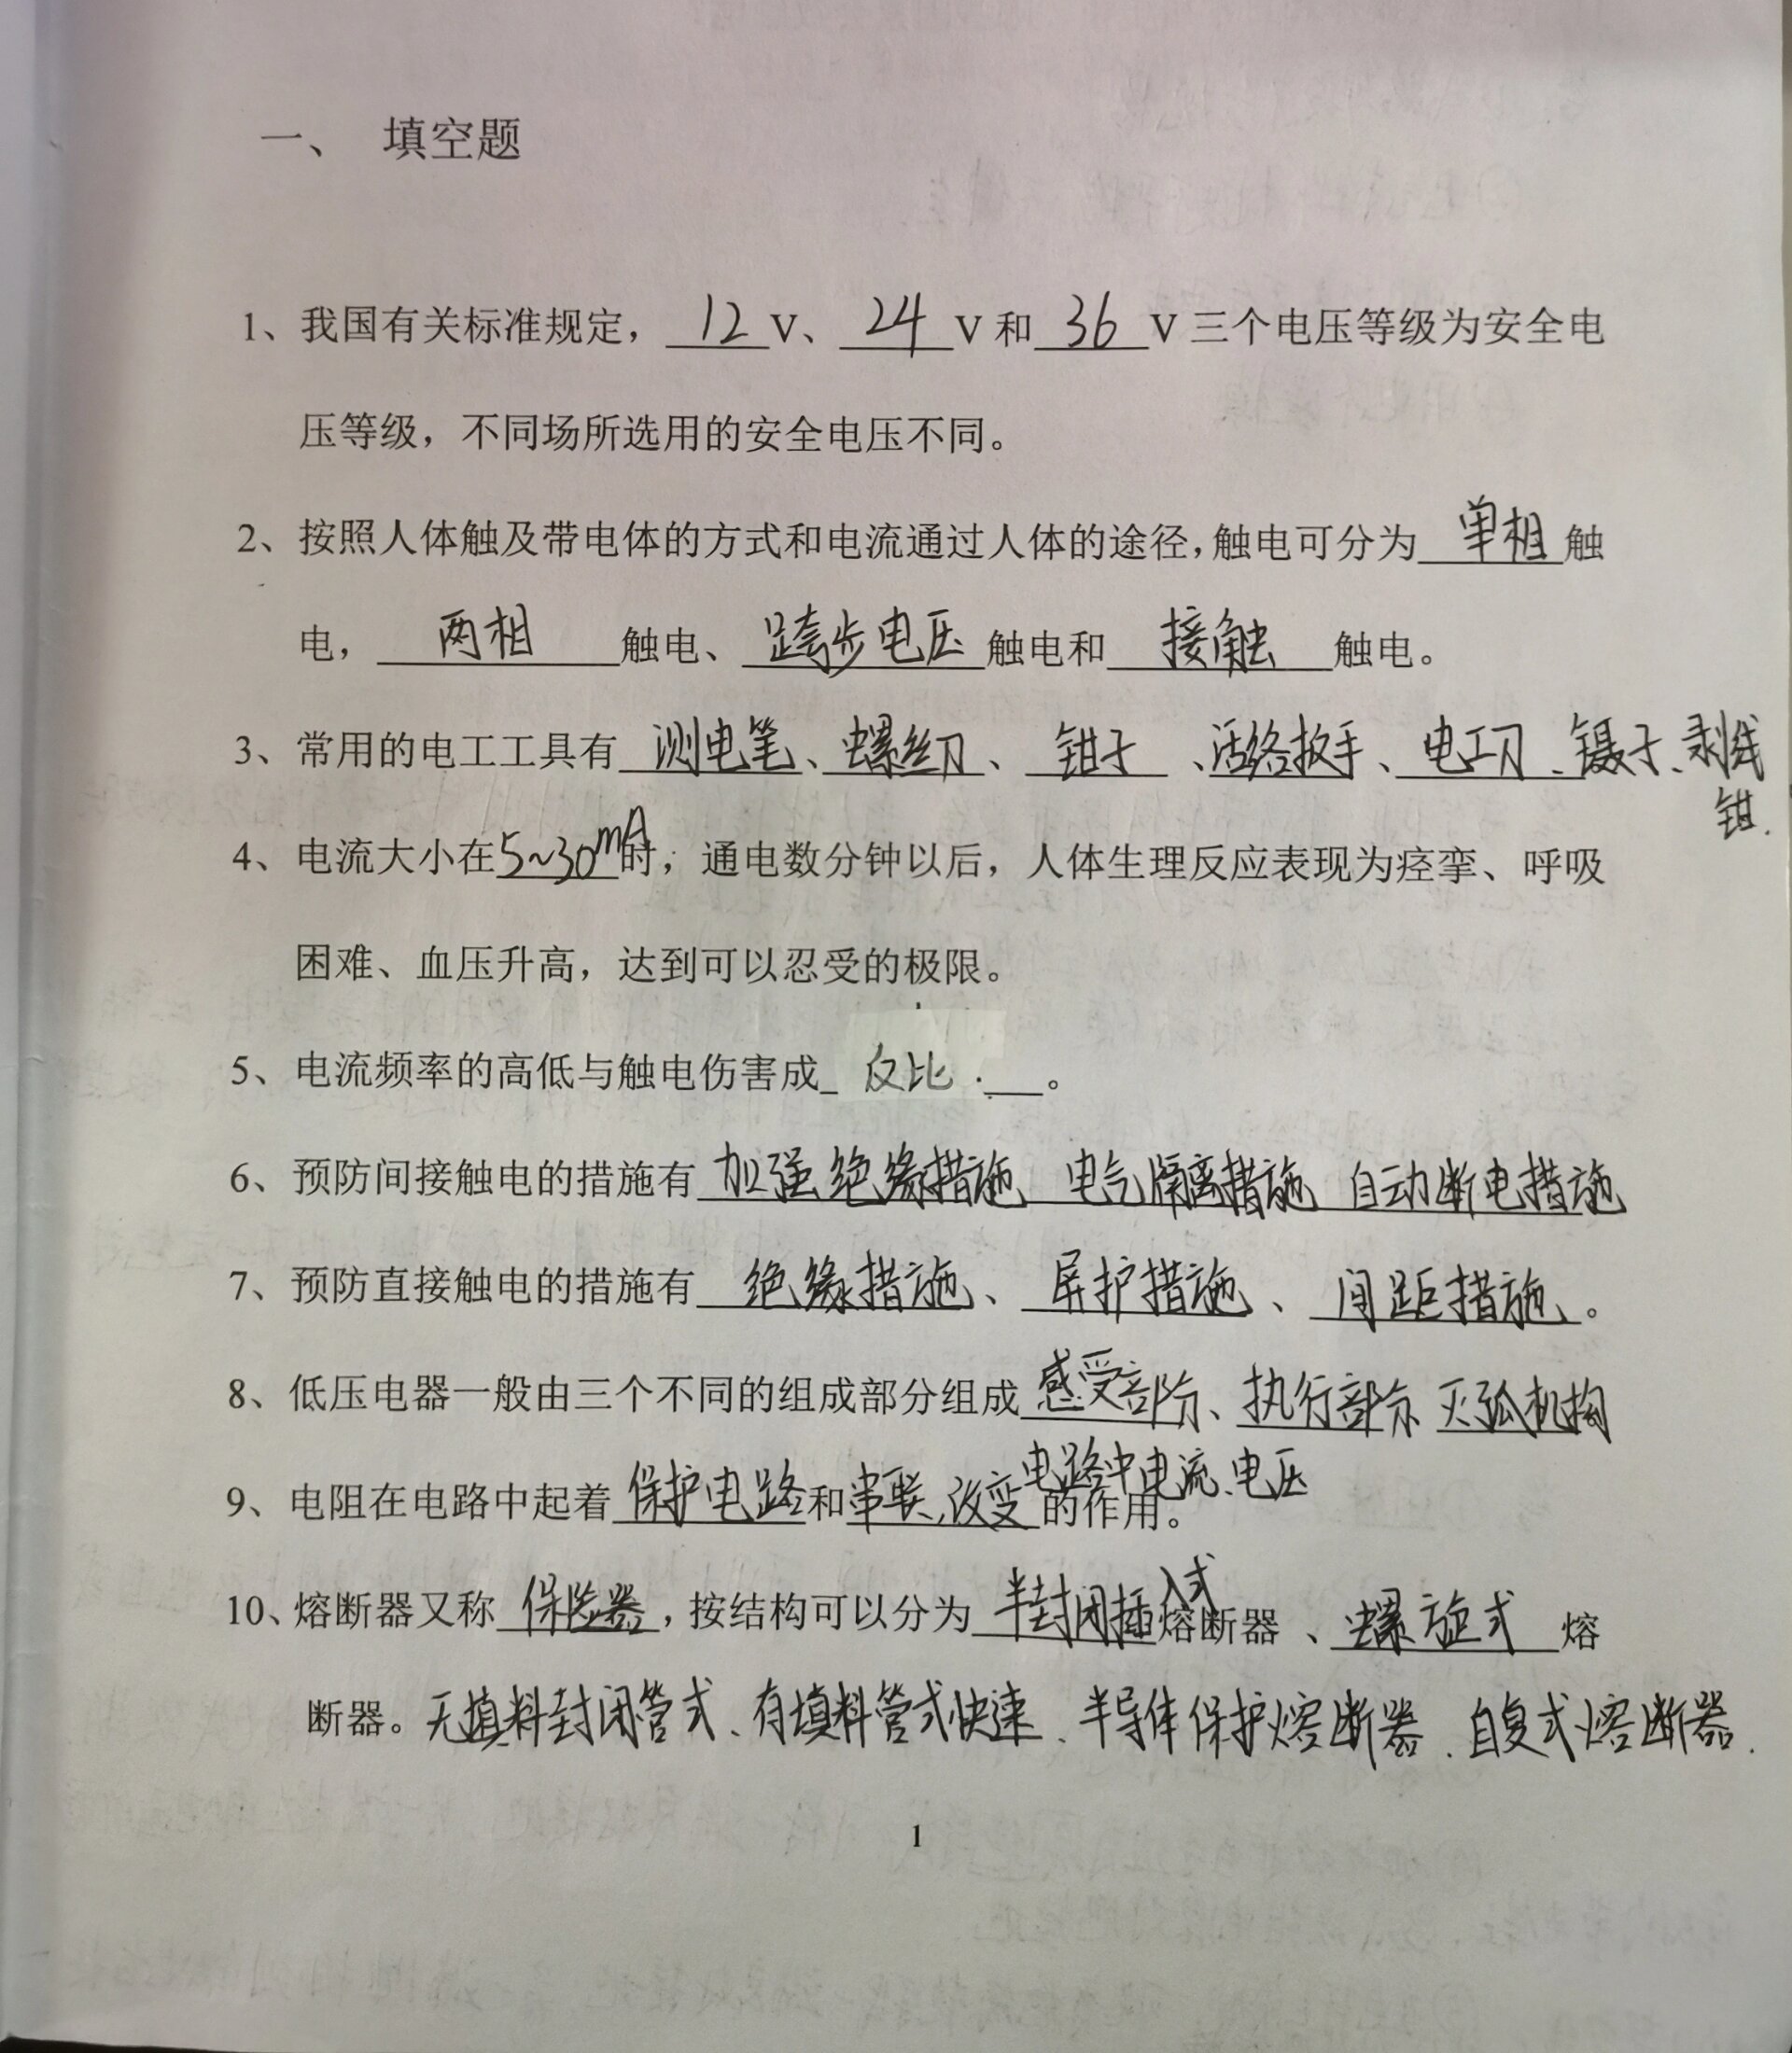 一、 填空题
1、我国有关标准规定，12V、24V和36V三个电压等级为安全电
压等级，不同场所选用的安全电压不同。
2、按照人体触及带电体的方式和电流通过人体的途径,触电可分为单相触
电，两相触电、跨步电压触电和接触触电。
3、常用的电工工具有测电笔、螺丝刀、钳子、活络扳手、电工刀、镊子、剥线
钳.
4、电流大小在5~30mA时，通电数分钟以后，人体生理反应表现为痉挛、呼吸
困难、血压升高，达到可以忍受的极限。
5、电流频率的高低与触电伤害成反比。
6、预防间接触电的措施有加强绝缘措施、电气隔离措施 自动断电措施
7、预防直接触电的措施有绝缘措施、屏护措施、间距措施。
8、低压电器一般由三个不同的组成部分组成感受部分、执行部分 灭弧机构
9、电阻在电路中起着保护电路和串联,改变电路中电流、电压的作用。
10、熔断器又称保险器，按结构可以分为半封闭插入式熔断器、螺旋式熔
断器。无填料封闭管式、有填料管式快速、半导体保护熔断器、自复式熔断器.
1